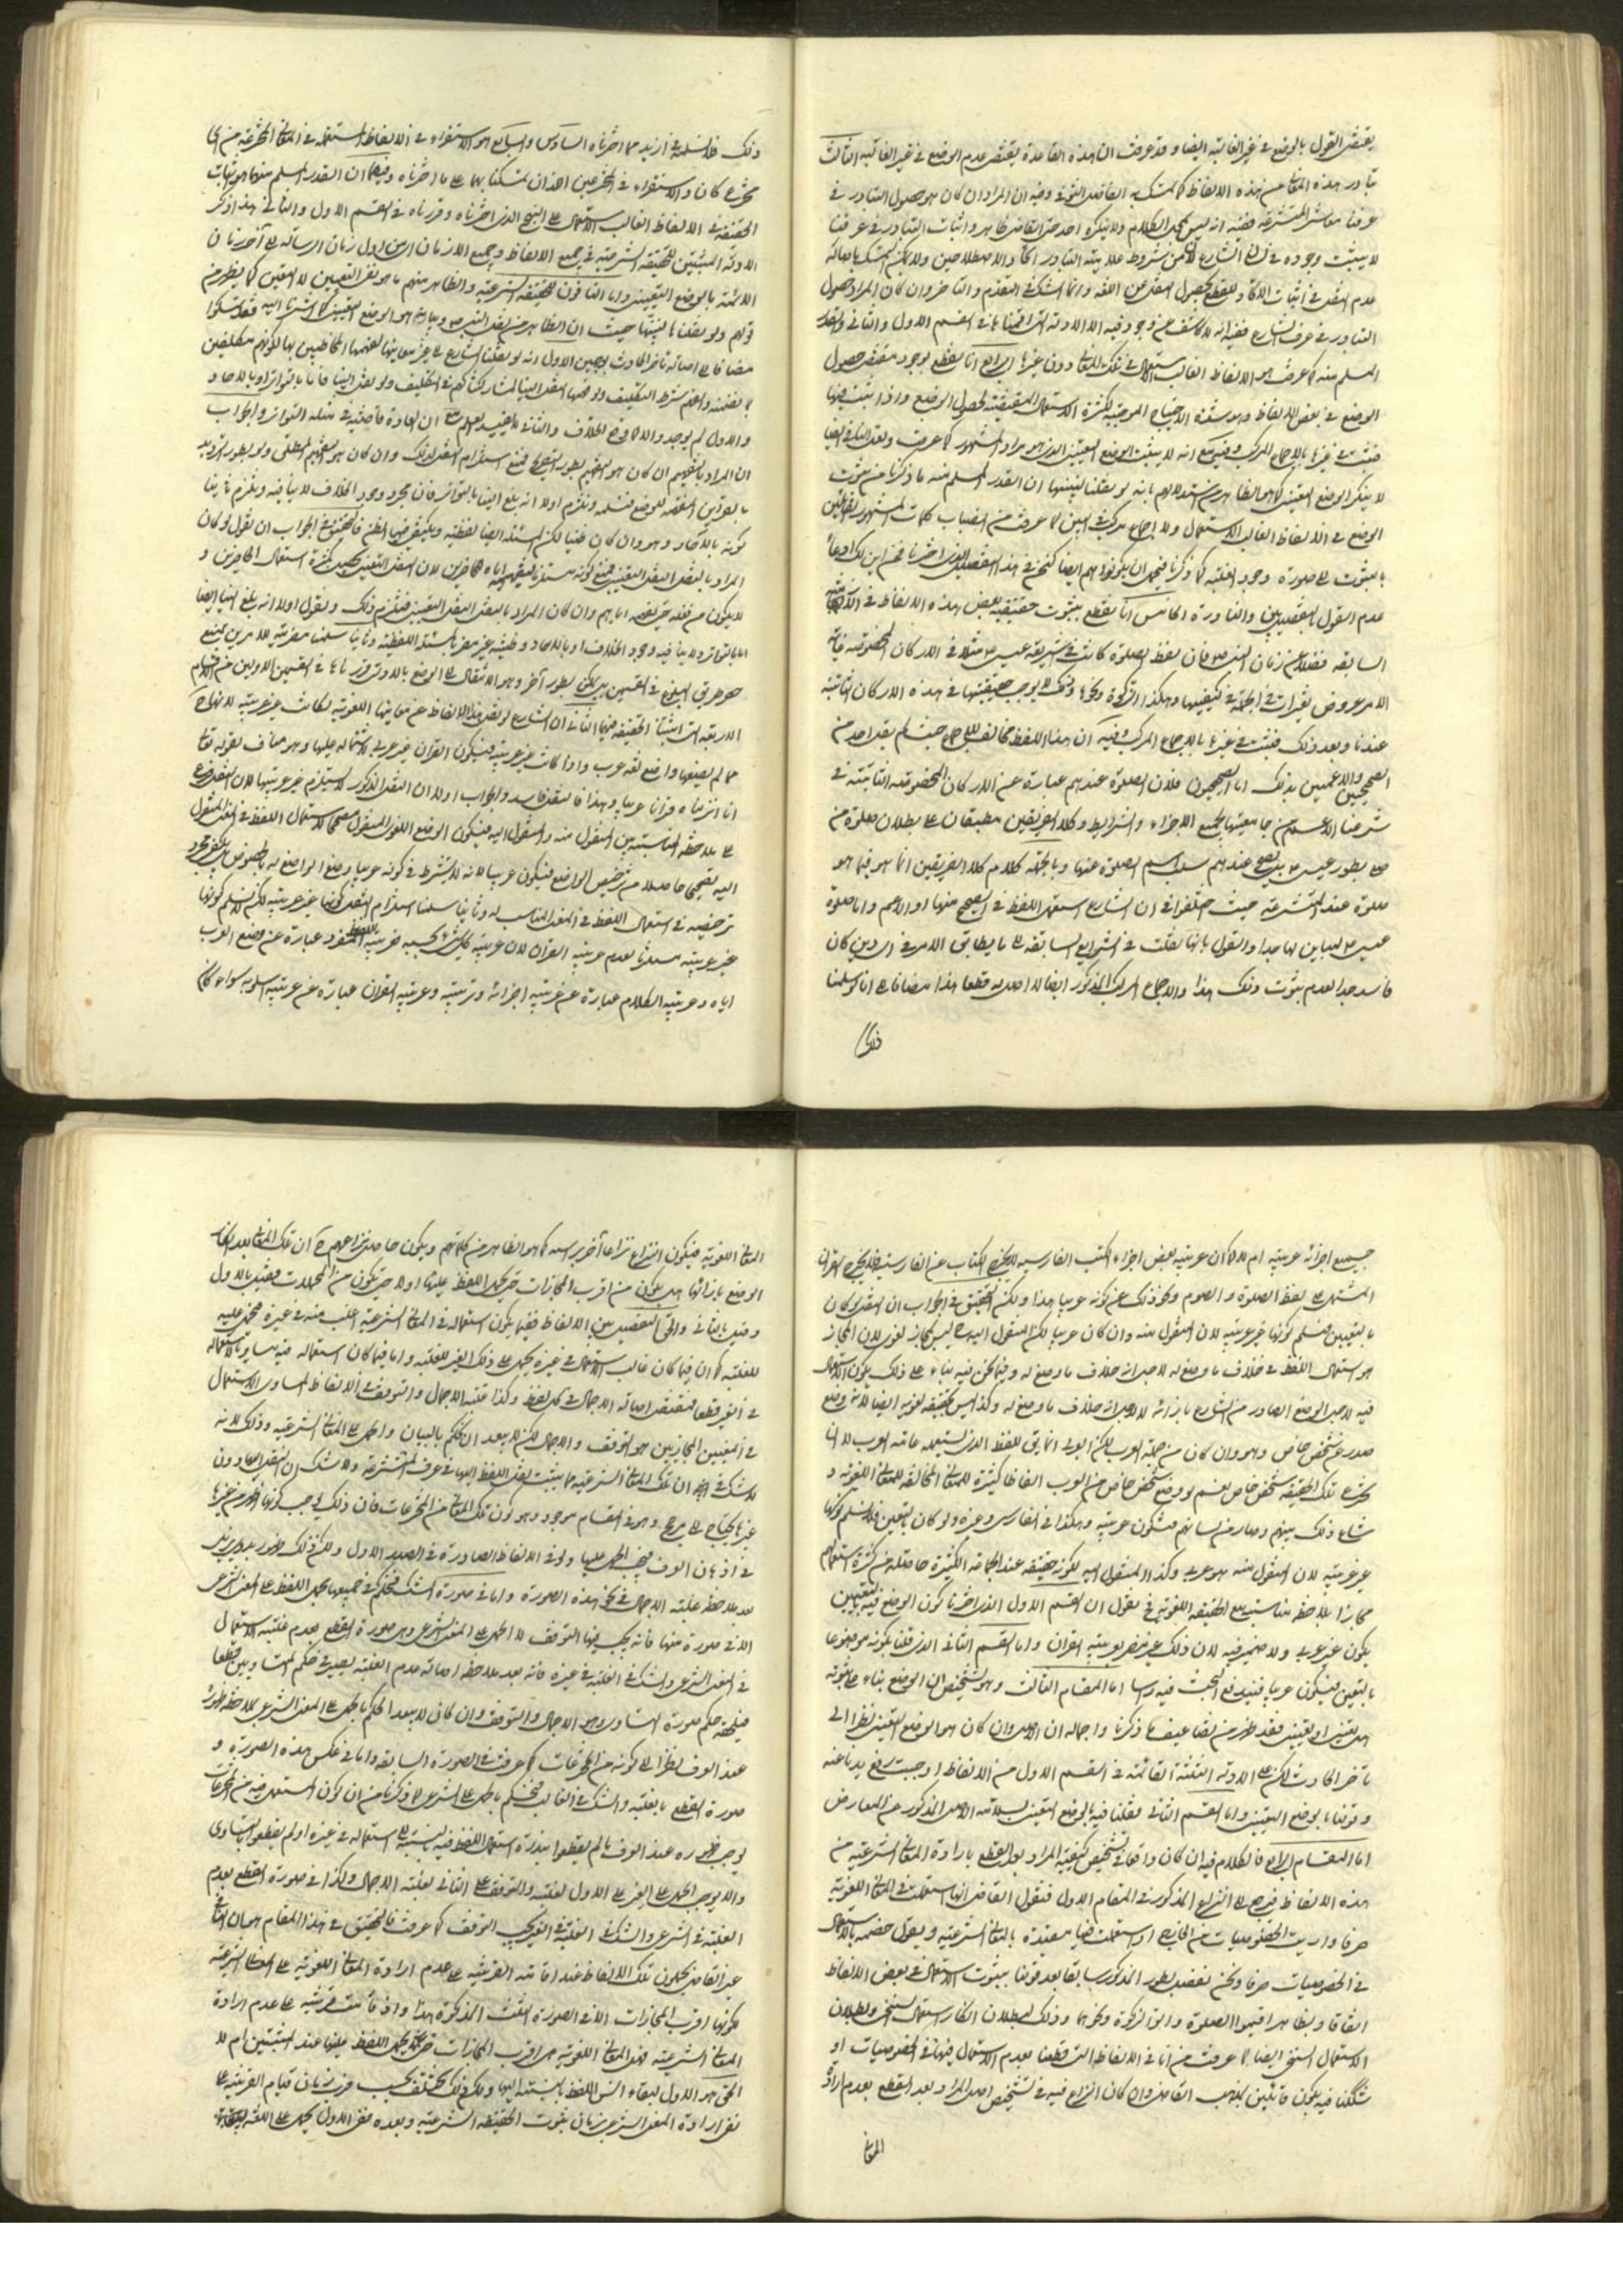 يقتضى القول بالوضع فى غير الغالبة ايضا و قد عرفت ان هذه القاعدة يقتضى عدم الوضع فى غير الغالبة الثالث
تبادر هذه المعانى من هذه الالفاظ كما تمسك به الفاضل التونى وفيه ان المراد ان كان هو حصول التبادر فى
عرفنا معاشر المتشرعة ففيه انه ليس محل الكلام ولا ينكره احد حتى القاضى ظاهرا واثبات التبادر فى عرفنا
لا يثبت وجوده فى زمان الشارع لان من شروط علامية التبادر اتحاد الاصطلاحين ولا يمكن التمسك باصالة
عدم النقل فى اثبات الاتحاد للقطع بحصول النقل عن اللغة وانما الشك فى التقدم والتاخر وان كان المراد حصول
التبادر فى عرف الشارع ففيه انه لا كاشف عن وجوده فيه الا الادلة التى اقمناها فى القسم الاول والثانى والقدر
المسلم منه كما عرفت هو الالفاظ الغالب استعمالها فى تلك المعانى دون غيرها الرابع انا نقطع بوجود مقتضى حصول
الوضع فى بعض الالفاظ وهو شدة الاحتياج الموجبة لكثرة الاستعمال المقتضية لحصول الوضع واذا ثبت فيها
فثبت فى غيرها بالاجماع المركب وفيه مع انه لا يثبت الوضع التعيينى الذى هو مراد المشهور كما عرفت ولعل القاضى ايضا
لا ينكر الوضع التعينى كما هو الظاهر من استدلاله بانه لو نقلنا لبينها ان القدر المسلم منه ما ذكرنا من ثبوت
الوضع فى الالفاظ الغالب الاستعمال ولا اجماع مركب فى البين لما عرفت من انصباب كلمات المشهور القائلين
بالثبوت على صورة وجود الغلبة كما ذكرنا فيحمل ان يكونوا هم ايضا كنحن فى هذا التفصيل الذى اخترنا فمن اين لك ادعاء
عدم القول بالتفصيل بين والنادرة الخامس انا نقطع بثبوت حقيقية بعض هذه الالفاظ فى الازمنة
السابقة فضلا عن زمان النبى ص فان لفظ الصلوة كانت فى شريعة عيسى ع مثلا فى الاركان المخصوصة غاية
الامر عروض تغيرات فى الجملة فى كيفيتها وهكذا الزكوة ونحوها وذلك لا يوجب حقيقيتها فى هذه الاركان الثابتة
عندنا وبعد ذلك فثبت فى غيرها بالاجماع المركب وفيه ان هذا اللفظ مخالف للاجماع حيث لم يقل احد من
الصحيحين والاعميين بذلك اما الصحيحيون فلان الصلوة عندهم عبارة عن الاركان المخصوصة الثابتة فى
شرعنا الاعم من جامعيتها لجميع الاجزاء والشرايط وكلا الفريقين مطبقان على بطلان صلوة من
صلى بطور عيسى ع بل يصح عندهم سلب اسم الصلوة عنها وبالجملة كلام كلا الفريقين انما هو فيما هو
صلوة عند المتشرعة حيث اختلفوا فى ان الشارع استعمل اللفظ فى الصحيح منها او الاعم واما صلوة
عيسى ع لمباين لها جدا والقول بانها نقلت فى الشرايع السابقة الى ما يطابق الامر فى اى دين كان
فاسد جدا لعدم ثبوت ذلك هذا والاجماع المركب المذكور ايضا لا اصل له قطعا هذا مضافا الى انا لو سلمنا
ذلك
ذلك فلا نسلمه فى ازيد مما اخترناه السادس والسابع هو الاستقراء فى الالفاظ المستعملة فى المعانى المخترعة من اى
مخترع كان والاستقراء فى المخترعين اللذان تمسكنا بهما على ما اخترناه وفيهما ان القدر المسلم منهما هو اثبات
الحقيقة فى الالفاظ الغالب الاستعمال على النهج الذى اخترناه وقررناه فى القسم الاول والثانى هذا ذكر
الادلة المثبتين للحقيقة الشرعية فى جميع الالفاظ وجميع الازمان اى من اول زمان الرسالة الى آخر زمان
الائمة بالوضع التعيينى واما النافون للحقيقة الشرعية والظاهر منهم ما هو نفى التعيين لا التعين كما يظهر من
قولهم ولو نقلنا لبينها حيث ان الظاهر من نقل النبى ص وبيانه هو الوضع التعيينى كما اشرنا اليه فقد تمسكوا
مضافا الى اصالة تاخر الحادث بوجهين الاول انه لو نقلها الشارع الى غير معانيها لفهمها المخاطبين بها لكونهم مكلفين
بما تضمنته والفهم شرط التكليف ولو فهمها لنقل الينا لمشاركتنا لهم فى التكليف ولو نقل الينا فاما بالتواتر او بالاحاد
والاول لم يوجد والا لما وقع الخلاف والثانى لا يفيد العلم مع ان العادة قاضية فى مثله التواتر والجواب
ان المراد بالتفهيم ان كان هو التفهيم بطور التصريح فنمنع استلزام النقل لذلك وان كان هو التفهيم المطلق ولو بطور الترديد
بالقراين المفهمة للوضع فنسلمه ونلتزم اولا انه بلغ الينا بالتواتر فان مجرد وجود الخلاف لا ينافيه ونلتزم ثانيا
كونه بالاحاد وهو وان كان ظنيا لكن المسئلة ايضا لفظية ويكتفى فيها بالظن فالتحقيق فى الجواب ان نقول لو كان
المراد بالنقل النقل التعيينى فنمنع كونه مستلزما لتفهيمه اياه للحاضرين لان النقل التعينى يحصل بكثرة استعمال الحاضرين و
لا يكون من فعله حتى يفهمه اياهم وان كان المراد بالنقل النقل التعيينى فنلتزم ذلك ونقول اولا انه بلغ الينا ايضا
اما بالتواتر ولا ينافيه وجود الخلاف او بالاحاد وظنيته غير مضر بالمسئلة اللفظية وثانيا سلمنا مضرية الامرين لمنع
حصر طريق البلوغ فى القسمين بل يمكن بطور آخر وهو الانتقال الى الوضع بالادلة التى قررناها فى القسمين الاولين من الاقسام
الاربعة التى اثبتنا الحقيقة فيها الثانى ان الشارع لو نقل هذه الالفاظ عن معانيها اللغوية لكانت غير عربية لانها ح
مما لم يضعها واضع لغة عرب واذا كانت غير عربية فيكون القران غير عربى لاشتماله عليها وهو مناف لقوله تعالى
انا انزلناه قرانا عربيا وهذا فالنقل فاسد والجواب اولا ان النقل المذكور لا يستلزم غير عربيتها لان النقل فرع
على ملاحظة المناسبة بين المنقول منه والمنقول اليه فيكون الوضع اللغوى المنقول مصححا لاستعمال اللفظ فى المعنى المنقول
اليه تصحيحا حاصلا من ترخيص الواضع فيكون عربيا لانه لا يشترط فى كونه عربيا وضع الواضع له بالخصوص بل يكفى مجرد
ترخيصه فى استعمال اللفظ فى المعنى المناسب له وثانيا سلمنا استلزام النقل كونها غير عربية لكن لا نسلم كونها
غير عربية مستلزما لعدم عربية القران لان عربية كل شئ بحسبه فعربية اللفظ المفرد عبارة عن وضع العرب
اياه وعربية الكلام عبارة عن عربية اجزائه وترتيبه وعربية القران عبارة عن عربية اسلوبه سواء كان
جميع اجزائه عربية ام لا كما ان عربية بعض اجزاء الكتب الفارسية لا يخرج الكتاب عن الفارسية فلا يخرج القران
المشتمل على لفظ الصلوة والصوم ونحو ذلك عن كونه عربيا هذا ولكن التحقيق فى الجواب ان النقل لو كان
بالتعيين فنسلم كونها غير عربية لان المنقول منه وان كان عربيا لكن المنقول اليه ح ليس بمجاز لغوى لان المجاز
هو استعمال اللفظ فى خلاف ما وضع له لاجل انه خلاف ما وضع له وفيما نحن فيه بناء على ذلك يكون الاستعمال
فيه لاجل الوضع الصادر من الشارع بازائه لا لاجل انه خلاف ما وضع له وكذا ليس بحقيقة لغوية ايضا لانه وضع
صدر عن شخص خاص وهو وان كان من جملة العرب لكن العربى انما يق للفظ الذى يستعمله عامة العرب لا ما
يخترع تلك الحقيقة شخص خاص نعم لو وضع شخص خاص من العرب الفاظا كثيرة للمعانى المخالفة للمعانى اللغوية و
شاع ذلك بينهم وصار من لسانهم فتكون عربية وهكذا فى الفارسى وغيره ولو كان بالتعين فلا نسلم كونها
غير عربية لان المنقول منه هو عربى وكذا المنقول اليه لكونه حقيقة عند الجماعة الكثيرة حاصلة من كثرة استعمالهم
مجازا بملاحظة مناسبته مع الحقيقة اللغوية فح نقول ان القسم الاول الذى اخترنا كون الوضع فيه بالتعيين
يكون غير عربى ولا ضير فيه لان ذلك غير مضر بعربية القران واما القسم الثانى الذى قلنا بكونه موضوعا
بالتعين فيكون عربيا فيندفع البحث فيه راسا اما المقام الثالث وهو تشخيص ان الوضع بناء على ثبوته
هل تعينى او تعيينى فقد ظهر من تضاعيف ما ذكرنا واجماله ان الاصل وان كان هو الوضع التعينى نظرا الى
تاخر الحادث لكن على الادلة الثلثة القائمة فى القسم الاول من الالفاظ اوجبت رفع يدنا عنه
وقولنا بالوضع التعيينى واما القسم الثانى فقلنا فيه بالوضع التعينى لسلامة الاصل المذكور عن المعارض
اما المقام الرابع فالكلام فيه ان كان واقعا فى تشخيص كيفية المراد بعد القطع بارادة المعانى الشرعية من
هذه الالفاظ فيرجع الى النزاع المذكور فى المقام الاول فنقول القاضى انها استعملت فى المعانى اللغوية
صرفا واريد الخصوصيات من الخارج او استعملت فيها مقيدة بالمعانى الشرعية ويقول خصمه بالاستعمال
فى الخصوصيات صرفا ونحن نفصل بطور المذكور سابقا بعد قولنا بثبوت الاستعمال فى بعض الالفاظ
اتفاقا وبظاهر اقيموا الصلوة واتوا الزكوة ونحوهما وذلك لبطلان انكار استعمال الشخصى وبطلان
الاستعمال الشخصى ايضا لما عرفت من انا فى الالفاظ التى قطعنا بعدم الاستعمال فيها فى الخصوصيات او
شككنا فيه يكون قائلين بمذهب القاضى وان كان النزاع فيه فى تشخيص اصل المراد بعد القطع بعدم ارادة
المعانى
المعانى اللغوية فيكون النزاع نزاعا آخر براسه كما هو الظاهر من كلماتهم ويكون حاصل نزاعهم ح ان تلك المعانى بعد انكار
الوضع بازائها هل يكون من اقرب المجازات حتى يحمل اللفظ عليها او لا حتى يكون من المجملات فقيل بالاول
وقيل بالثانى والحق التفصيل بين الالفاظ ففيما يكون استعماله فى المعانى الشرعية اغلب منه فى غيره فنحمل عليه
للغلبة كما ان فيما كان غالب الاستعمال فى غيره نحمل على ذلك الغير للغلبة واما فيما كان استعماله فيه مساويا لاستعماله
فى الغير قطعا فمقتضى اصالة الاجمال فى كل لفظ وكذا غلبة الاجمال والتوقف فى الالفاظ المساوى الاستعمال
فى المعنيين المجازيين هو التوقف والاجمال لكن لا يبعد ان نحكم بالبيان والحمل على المعانى الشرعية وذلك لانه
لا شك فى ان تلك المعانى الشرعية مما يثبت نقل اللفظ اليها فى عرف المتشرعة ولا شك ان النقل اليها دون
غيرها يحتاج الى مرجح وهو فى المقام موجود وهو كون تلك المعانى من المخترعات فان ذلك يوجب كونها اظهر من غيرها
فى اذهان العرف فيجب الحمل عليها ولو فى الالفاظ الصادرة فى الصدر الاول ولكن ذلك ظهور بدوى يزيد
بعد ملاحظة غلبة الاجمال فى نحو هذه الصورة واما فى صورة الشك فنحكم فى جميعها بحمل اللفظ على المعنى الشرعى
الا فى صورة منها فانه يجب فيها التوقف لا الحمل على المعنى الشرعى وهى صورة القطع بعدم غلبة الاستعمال
فى المعنى الشرعى والشك فى الغلبة فى غيره فانه بعد ملاحظة اصالة عدم الغلبة يصير فى حكم المتساويين قطعا
فيلحقه حكم صورة التساوى وهو الاجمال والتوقف وان كان لا يبعد الحكم بالحمل على المعنى الشرعى بملاحظة ظهوره
عند العرف نظرا الى كونه من المخترعات كما عرفت فى الصورة السابقة واما فى عكس هذه الصورة و
صورة القطع بالغلبة والشك فى الغالب فنحكم بالحمل على الشرعى لما ذكرنا من ان كون المستعمل فيه من المخترعات
يوجب ظهوره عند العرف ما لم يقطعوا بندرة استعمال اللفظ فيه بالنسبة الى استعماله فى غيره او لم يقطعوا بالتساوى
والا يوجب الحمل على الغير على الاول لغلبته والتوقف على الثانى لغلبة الاجمال وكذا فى صورة القطع بعدم
الغلبة فى الشرعى والشك فى الغلبة فى الغير يجب التوقف كما عرفت فالتحقيق فى هذا المقام هو ان النافى
غير القاضى يحملون تلك الالفاظ عند اقامة القرينة على عدم ارادة المعانى اللغوية على المعانى الشرعية
لكونها اقرب المجازات الا فى الصورة الثلث المذكورة هذا واذا قامت قرينة على عدم ارادة
المعانى الشرعية فهل المعانى اللغوية هى اقرب المجازات حتى يحمل اللفظ عليها عند المثبتين ام لا
الحق هو الاول لبقاء انس اللفظ بالنسبة اليها ولكن ذلك يختلف بحسب قرب زمان قيام القرينة على
نفى ارادة المعنى الشرعى زمان ثبوت الحقيقة الشرعية وبعده ففى الاول يحمل على اللغة